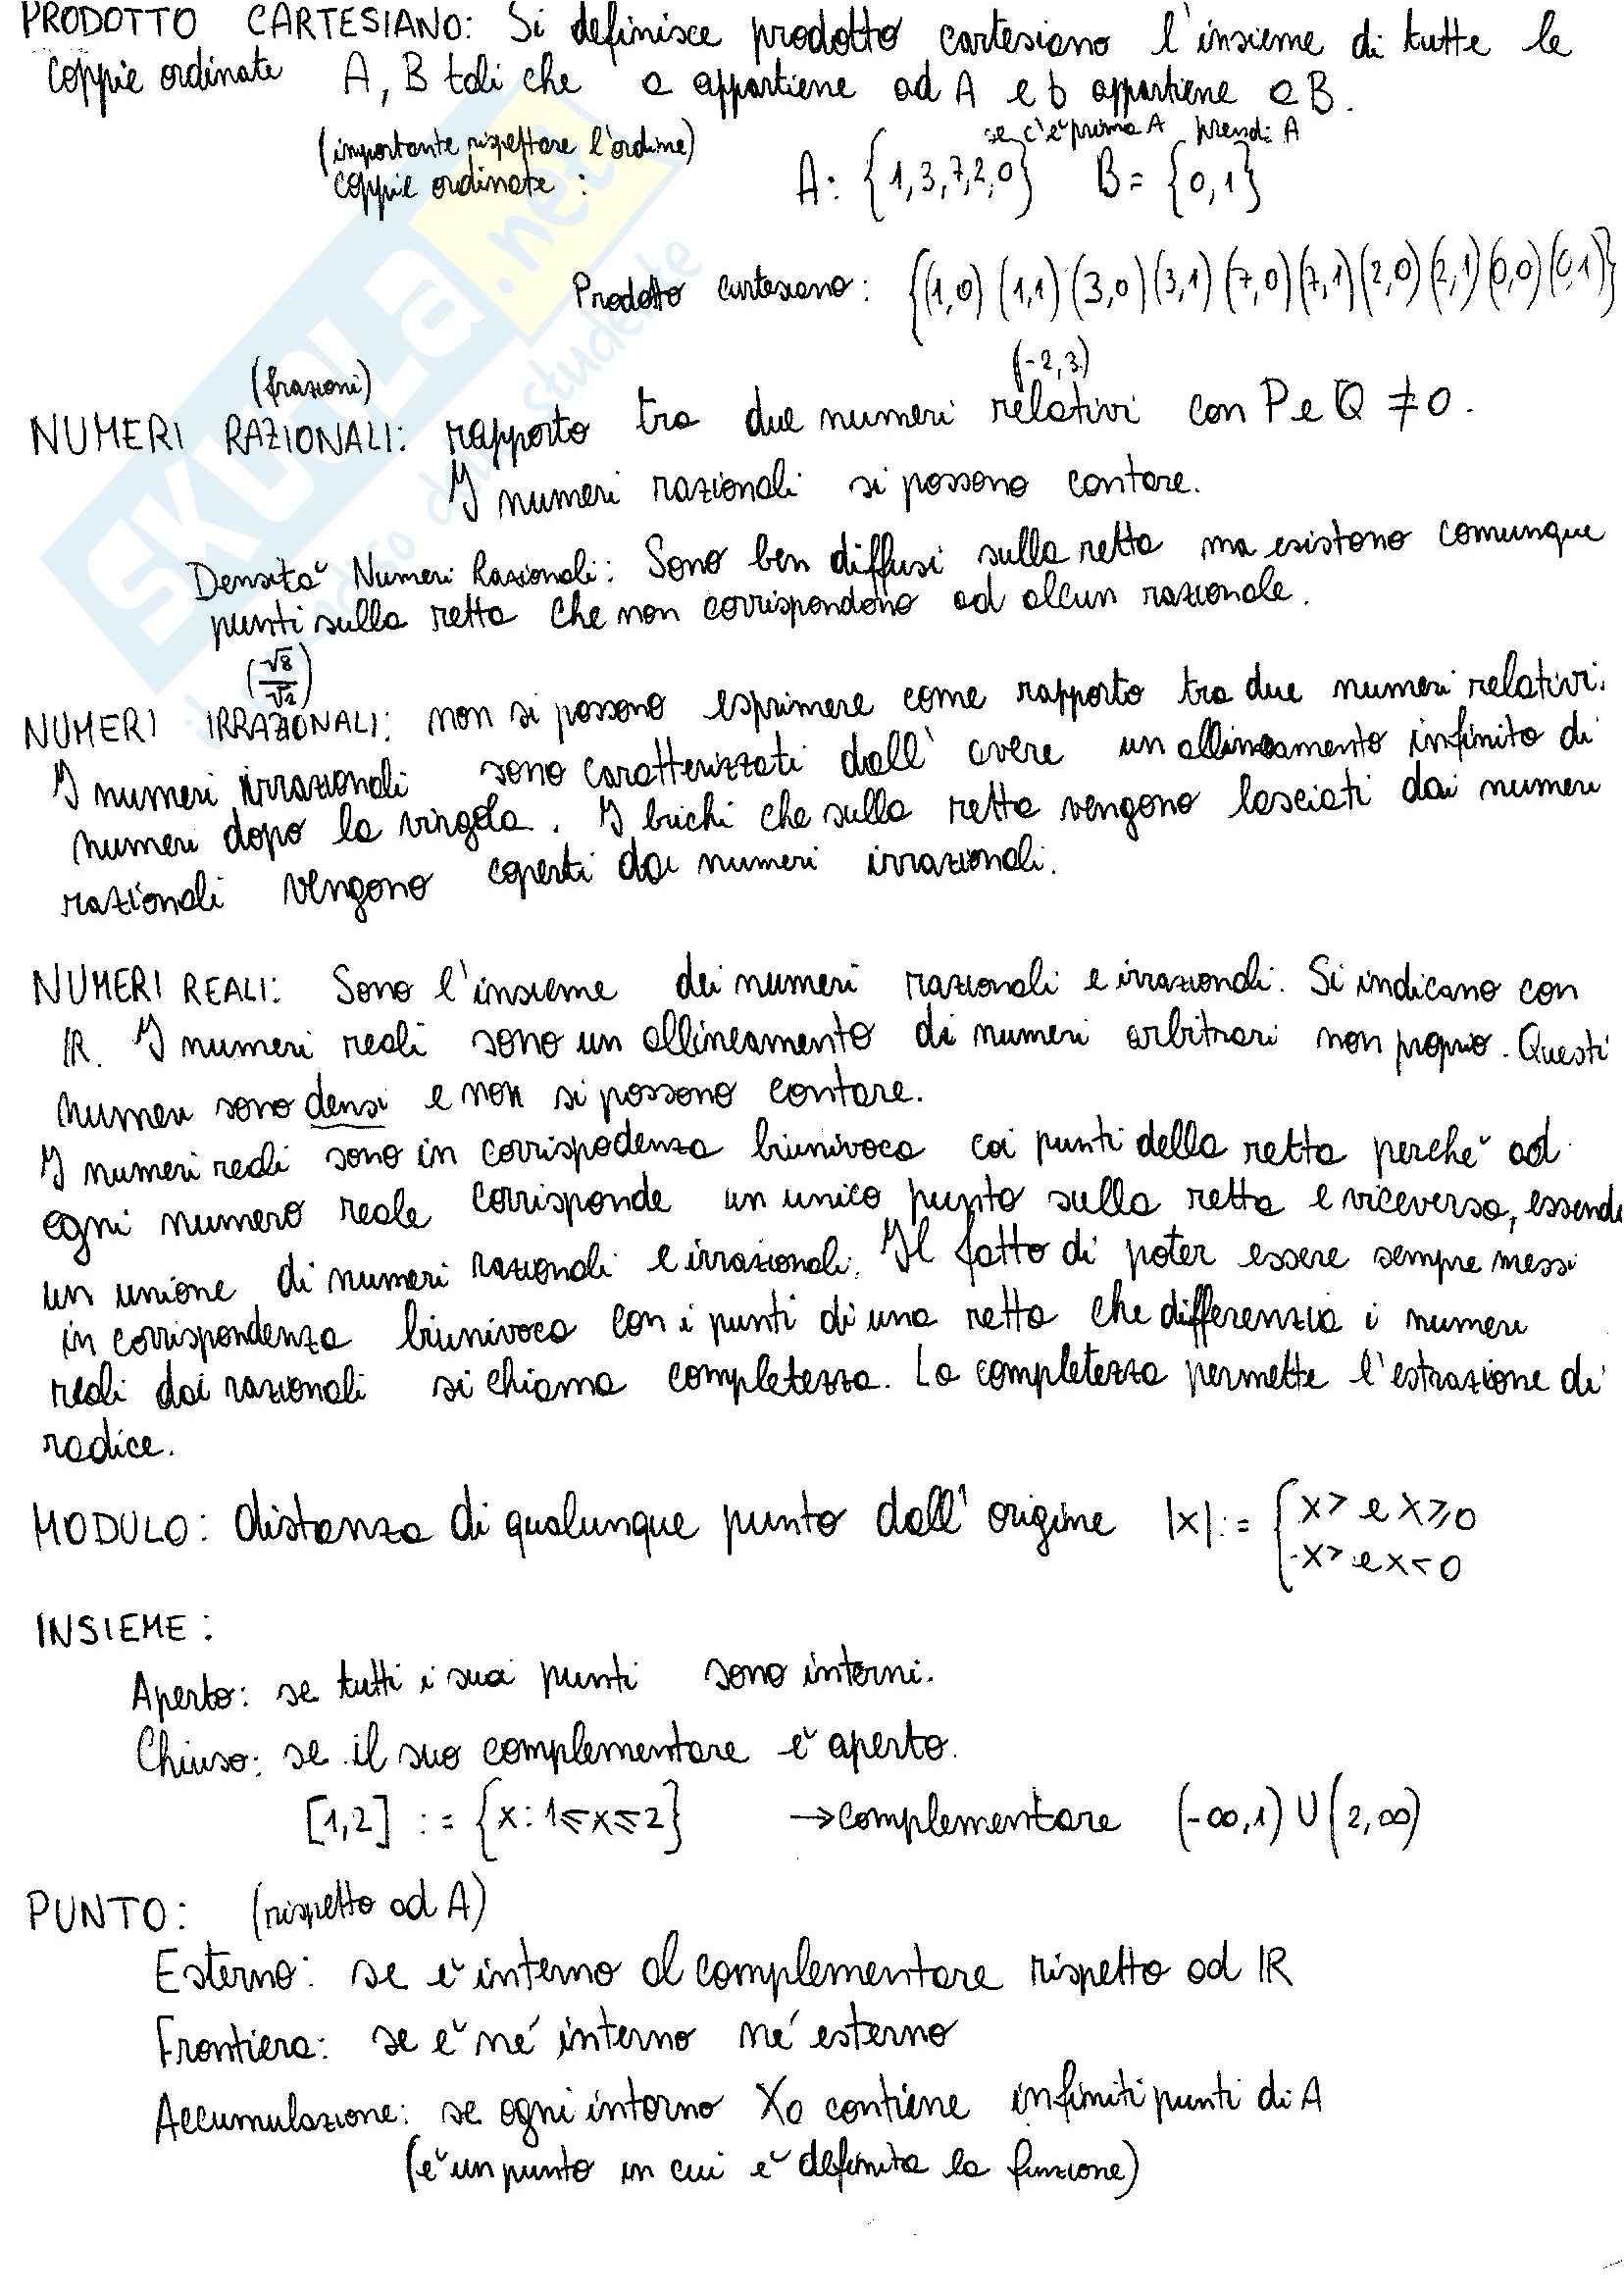 PRODOTTO CARTESIANO: Si definisce prodotto cartesiano l'insieme di tutte le
coppie ordinate A, B tali che a appartiene ad A e b appartiene a B.
(importante rispettare l'ordine) se c'è prima A prendi A
coppie ordinate : A: {1,3,7,2,0} B= {0,1}
Prodotto cartesiano: {(1,0) (1,1) (3,0) (3,1) (7,0) (7,1) (2,0) (2,1) (0,0) (0,1)}
(frazioni) (-2,3)
NUMERI RAZIONALI: rapporto tra due numeri relativi con P e Q ≠0.
I numeri razionali si possono contare.
Densità Numeri Razionali: Sono ben diffusi sulla retta ma esistono comunque
punti sulla retta che non corrispondono ad alcun razionale.
(√8/√2)
NUMERI IRRAZIONALI: non si possono esprimere come rapporto tra due numeri relativi.
I numeri irrazionali sono caratterizzati dall' avere un allineamento infinito di
numeri dopo la virgola. I buchi che sulla retta vengono lasciati dai numeri
razionali vengono coperti dai numeri irrazionali.
NUMERI REALI: Sono l'insieme dei numeri razionali e irrazionali. Si indicano con
IR. I numeri reali sono un allineamento di numeri arbitrari non proprio. Questi
numeri sono densi e non si possono contare.
I numeri reali sono in corrispodenza biunivoca coi punti della retta perchè ad
ogni numero reale corrisponde un unico punto sulla retta e viceversa, essendo
un unione di numeri razionali e irrazionali. Il fatto di poter essere sempre messi
in corrispondenza biunivoca con i punti di una retta che differenzia i numeri
reali dai razionali si chiama completezza. La completezza permette l'estrazione di
radice.
MODULO: distanza di qualunque punto dall' origine |x|:= { x> e x≥0
-x> e x<0
INSIEME:
Aperto: se tutti i suoi punti sono interni.
Chiuso: se il suo complementare è aperto.
[1,2] := {x: 1≤x≤2} →complementare (-∞,1) U (2,∞)
PUNTO: (rispetto ad A)
Esterno: se è interno al complementare rispetto ad IR
Frontiera: se è né interno né esterno
Accumulazione: se ogni intorno X0 contiene infiniti punti di A
(è un punto in cui è definita la funzione)
SKUOLA.net